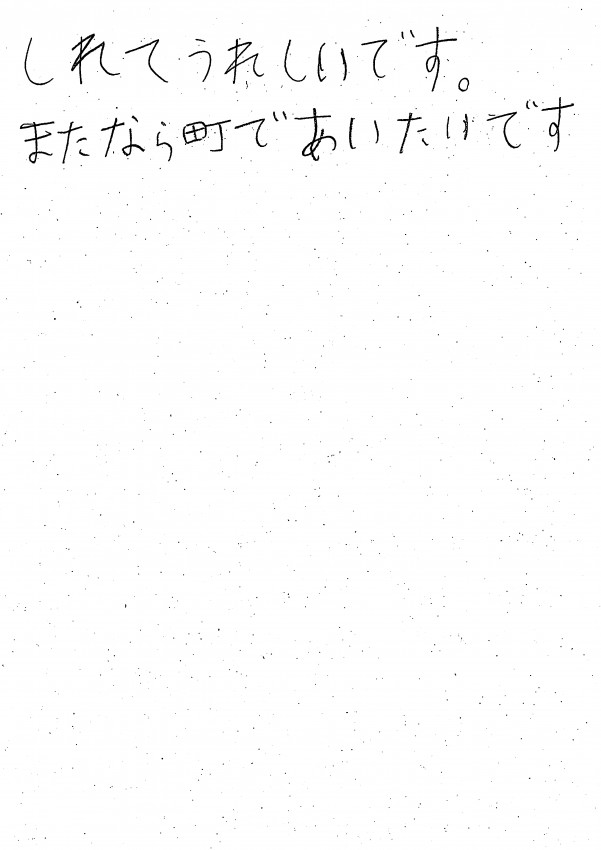 しれてうれしいです。
またなら町であいたいです